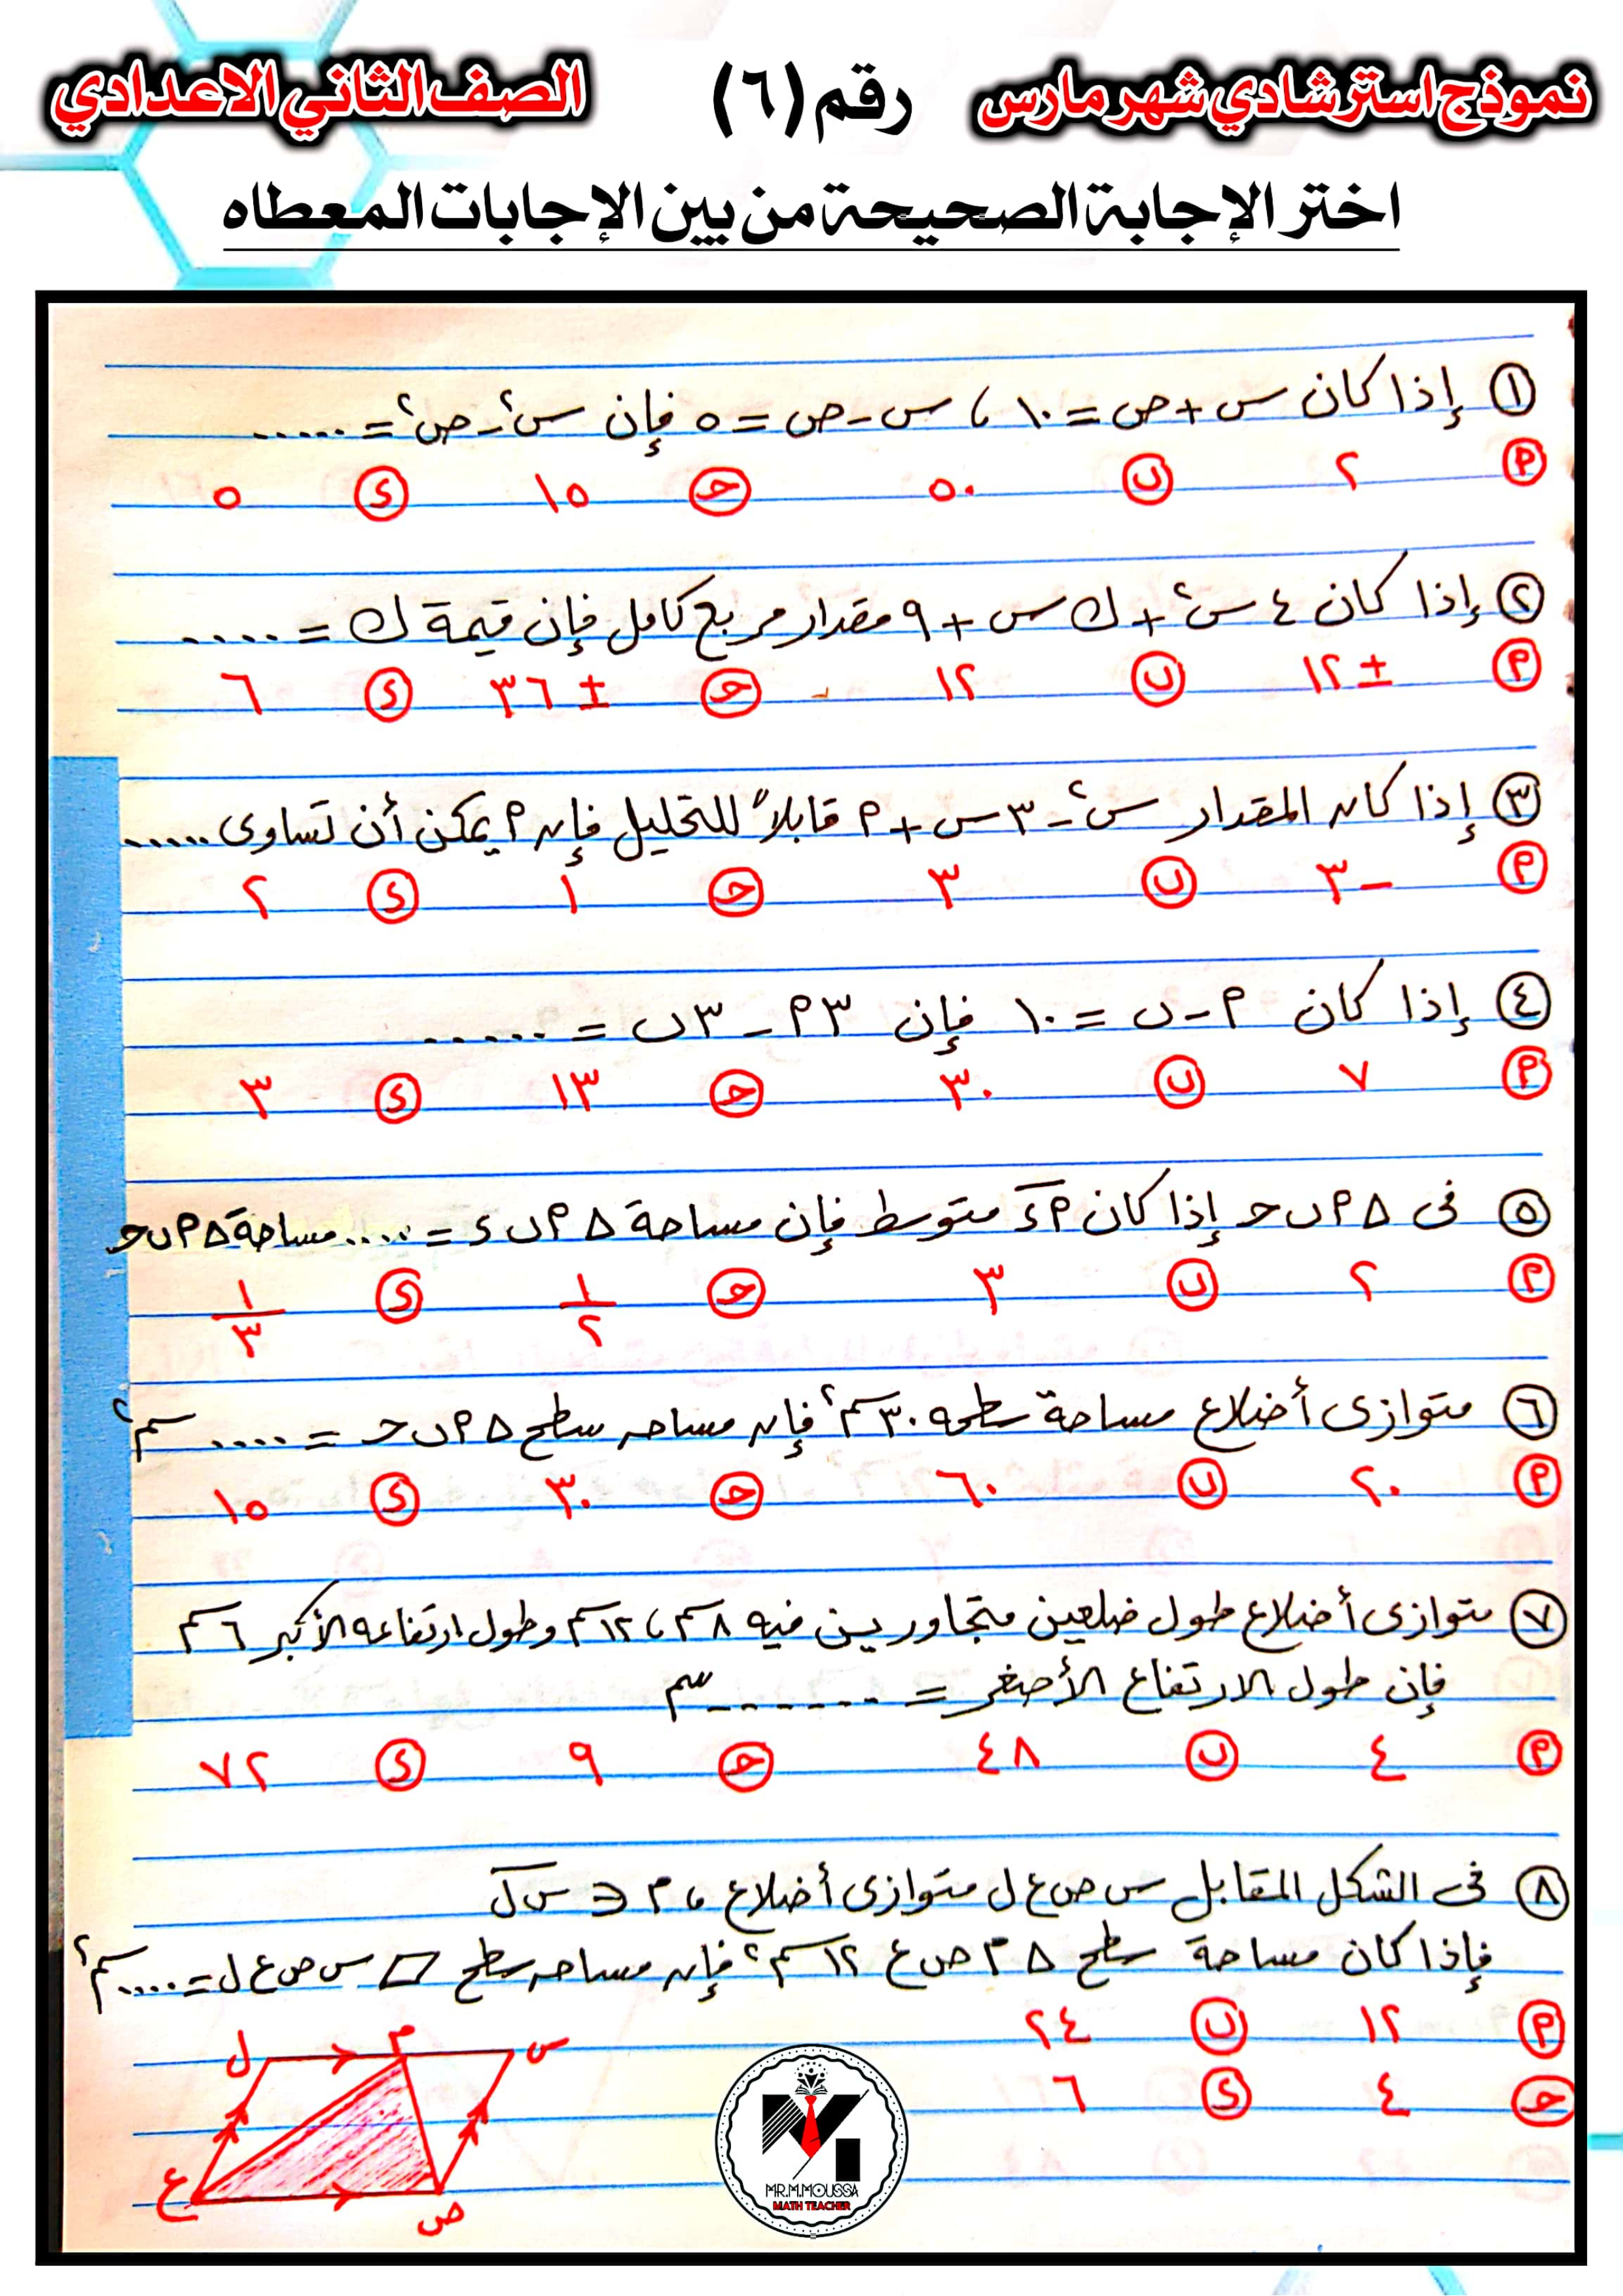 نموذج استرشادي شهر مارس رقم (٦) الصف الثاني الاعدادي
اختر الإجابة الصحيحة من بين الإجابات المعطاه
١ إذا كان س + ص = ١٠ ، س - ص = ٥ فإن س² - ص² = .....
P ٢ ب ٥٠ ج ١٥ د ٥
٢ إذا كان ٤س² + ك س + ٩ مقدار مربع كامل فإن قيمة ك = .....
P ± ١٢ ب ١٢ ج ± ٣٦ د ٦
٣ إذا كان المقدار س² - ٣س + P قابلاً للتحليل فإن P يمكن أن تساوى .....
P -٣ ب ٣ ج ١ د ٢
٤ إذا كان P - ب = ١٠ فإن ٣P - ٣ب = .....
P ٧ ب ٣٠ ج ١٣ د ٣
٥ فى Δ P ب ج إذا كان P د متوسط فإن مساحة Δ P ب د = .... مساحة Δ P ب ج
P ٢ ب ٣ ج ١/٢ د ١/٣
٦ متوازى أضلاع مساحة سطحه ٣٠سم² فإن مساحه سطح Δ P ب ج = .... سم²
P ٢٠ ب ٦٠ ج ٣٠ د ١٥
٧ متوازى أضلاع طول ضلعين متجاورين فيه ٨سم ، ١٢سم وطول ارتفاعه الأكبر ٦سم
فإن طول الارتفاع الأصغر = ....... سم
P ٤ ب ٤٨ ج ٩ د ٧٢
٨ فى الشكل المقابل س ص ع ل متوازى أضلاع ، م ∈ س ل
فإذا كان مساحة سطح Δ م ص ع ١٢سم² فإن مساحه سطح ▱ س ص ع ل = .... سم²
P ١٢ ب ٢٤
ج ٤ د ٦
ل م س
ع ص
MR.M.MOUSSA
MATH TEACHER